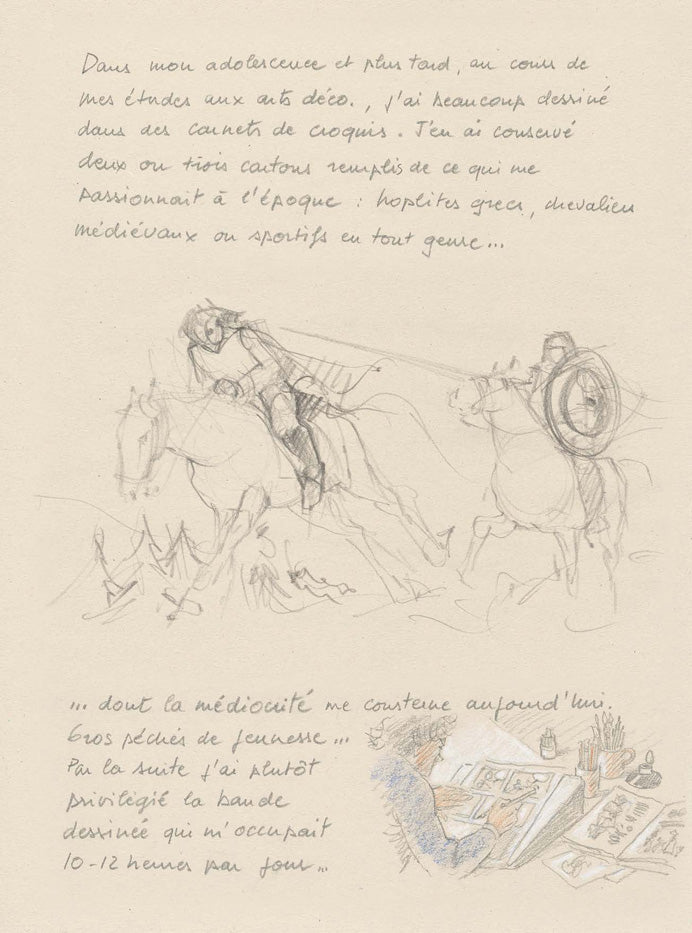 Dans mon adolescence et plus tard, au cours de
mes études aux arts déco., j'ai beaucoup dessiné
dans des carnets de croquis. J'en ai conservé
deux ou trois cartons remplis de ce qui me
passionnait à l'époque : hoplites grecs, chevaliers
médiévaux ou sportifs en tout genre...
... dont la médiocrité me consterne aujourd'hui.
Gros péchés de jeunesse ...
Par la suite j'ai plutôt
privilégié la bande
dessinée qui m'occupait
10-12 heures par jour...